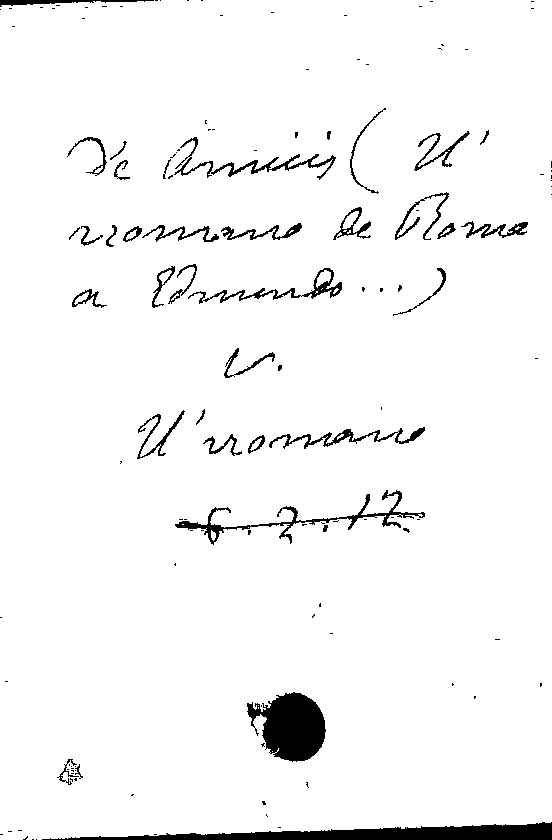 De Amicis (U'
rromano de Roma
a Edmondo...)
v.
U' rromano
6.2.12